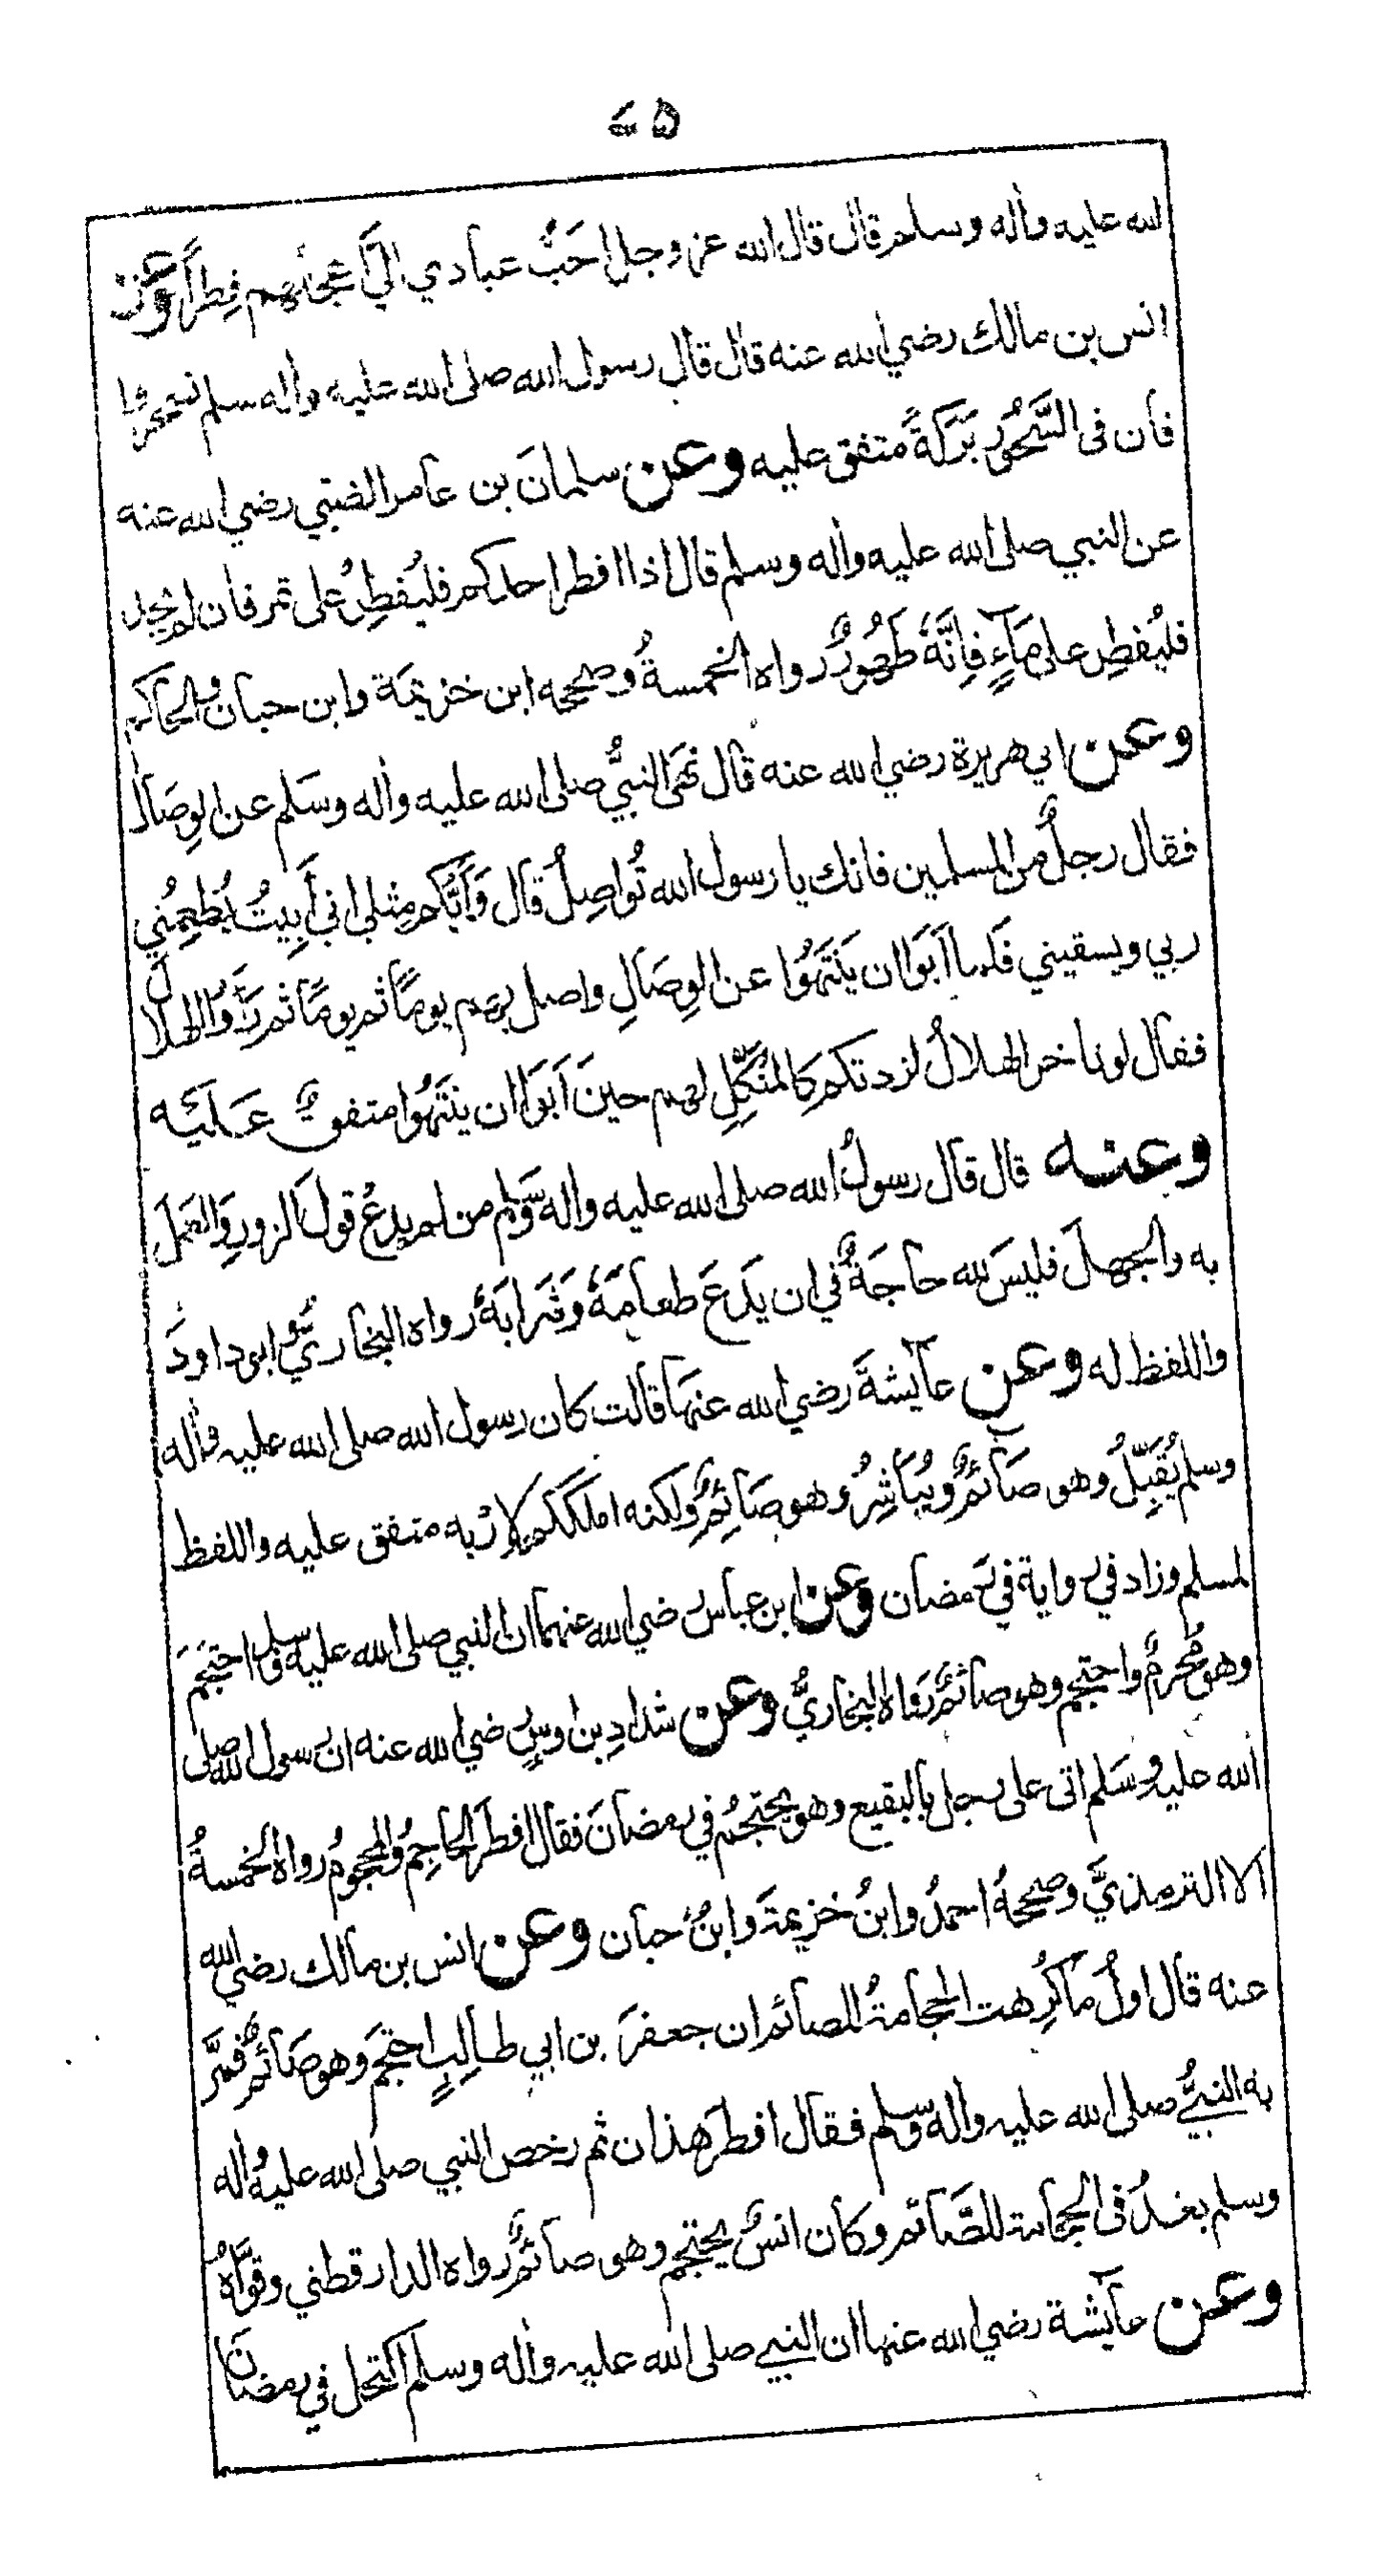 ٥٦
الله عليه واٰله وسلم قال قال الله عز وجل احَبُّ عبادي اليَّ اعجلُهم فِطراً وعن
انس بن مالك رضي الله عنه قال قال رسول الله صلى الله عليه واٰله سلم تسحروا
فان فى السَّحُورِ بَرَكةً متفق عليه وعن سلمانَ بن عامر الضبّي رضي الله عنه
عن النبي صلى الله عليه واٰله وسلم قال اذا افطر احدكم فليُفطِر على تمر فان لم يجد
فليُفطِر على مَآءٍ فاِنَّهٗ طَهُورٌ رواه الخمسةُ وصححه ابن خزيمة وابن حبان والحاكم
وعن ابي هريرة رضي الله عنه قال نهَى النبيُّ صلى الله عليه واٰله وسَلم عن الوِصَال
فقال رجلٌ من المسلمين فانك يا رسول الله تُواصِلُ قال وَاَيُّكم مِثلي اني اَبِيتُ يُطعِمُني
ربي ويسقيني فَلَما اَبَوا ان يَنتَهُوا عن الوِصَالِ واصل بهم يومًا ثم يومًا ثم رَأَوُا الهلال
فقال لو تاخر الهلالُ لزدتكم كالمُنَكِّلِ لهم حينَ اَبَوا ان ينتَهُوا متفقٌ عَلَيْه
وعنه قال قال رسولُ الله صلى الله عليه واله وَسلم من لم يدعْ قولَ الزورِ وَالعَمَلَ
به والجهلَ فليسَ لله حاجَةٌ في ان يَدَعَ طعامَهٗ وَشَرابَهٗ رواه البخاريُّ وابو داودَ
واللفظ له وعن عآيشةَ رضي الله عنهَا قالت كان رسول الله صلى الله عليه واٰله
وسلم يُقَبِّلُ وهو صَآئمٌ ويُبَاشِرُ وهو صَائِمٌ ولكنه املككم لاِرْبه متفق عليه واللفظ
لمسلم وزاد في رواية في رَمضان وعن ابن عباس رضي الله عنهما ان النبي صلى الله عليه وسلم احتجَمَ
وهو مُحرِمٌ واحتجم وهو صائمٌ رَوَاه البخاريُّ وعن شدادِ بن اوسٍ رضي الله عنه ان رسول الله صلى
الله عليه وسَلم اتى على رجل بالبقيع وهو يحتجمُ في رمضانَ فقال افطَرَ الحَاجِمُ والمحجومُ رواه الخمسةُ
الا الترمذيَّ وصححهُ احمدُ وابنُ خزيمةَ وابنُ حبان وعن انس بن مالك رضي الله
عنه قال اولُ ما كُرِهت الحجامةُ للصائم ان جعفرَ بن ابي طالِبٍ احتجَمَ وهو صَائمٌ فمَرَّ
به النبيُّ صلى الله عليه واٰله وسلم فقال افطَرَ هذان ثم رخص النبي صلى الله عليه واٰله
وسلم بعدُ فى الحجامة للصَّائم وكان انسٌ يحتجم وهو صائمٌ رواه الدارقطني وقوَّاهُ
وعن عآيشة رضي الله عنها ان النبيَّ صلى الله عليه واٰله وسلم اكتحل في رمضَانَ